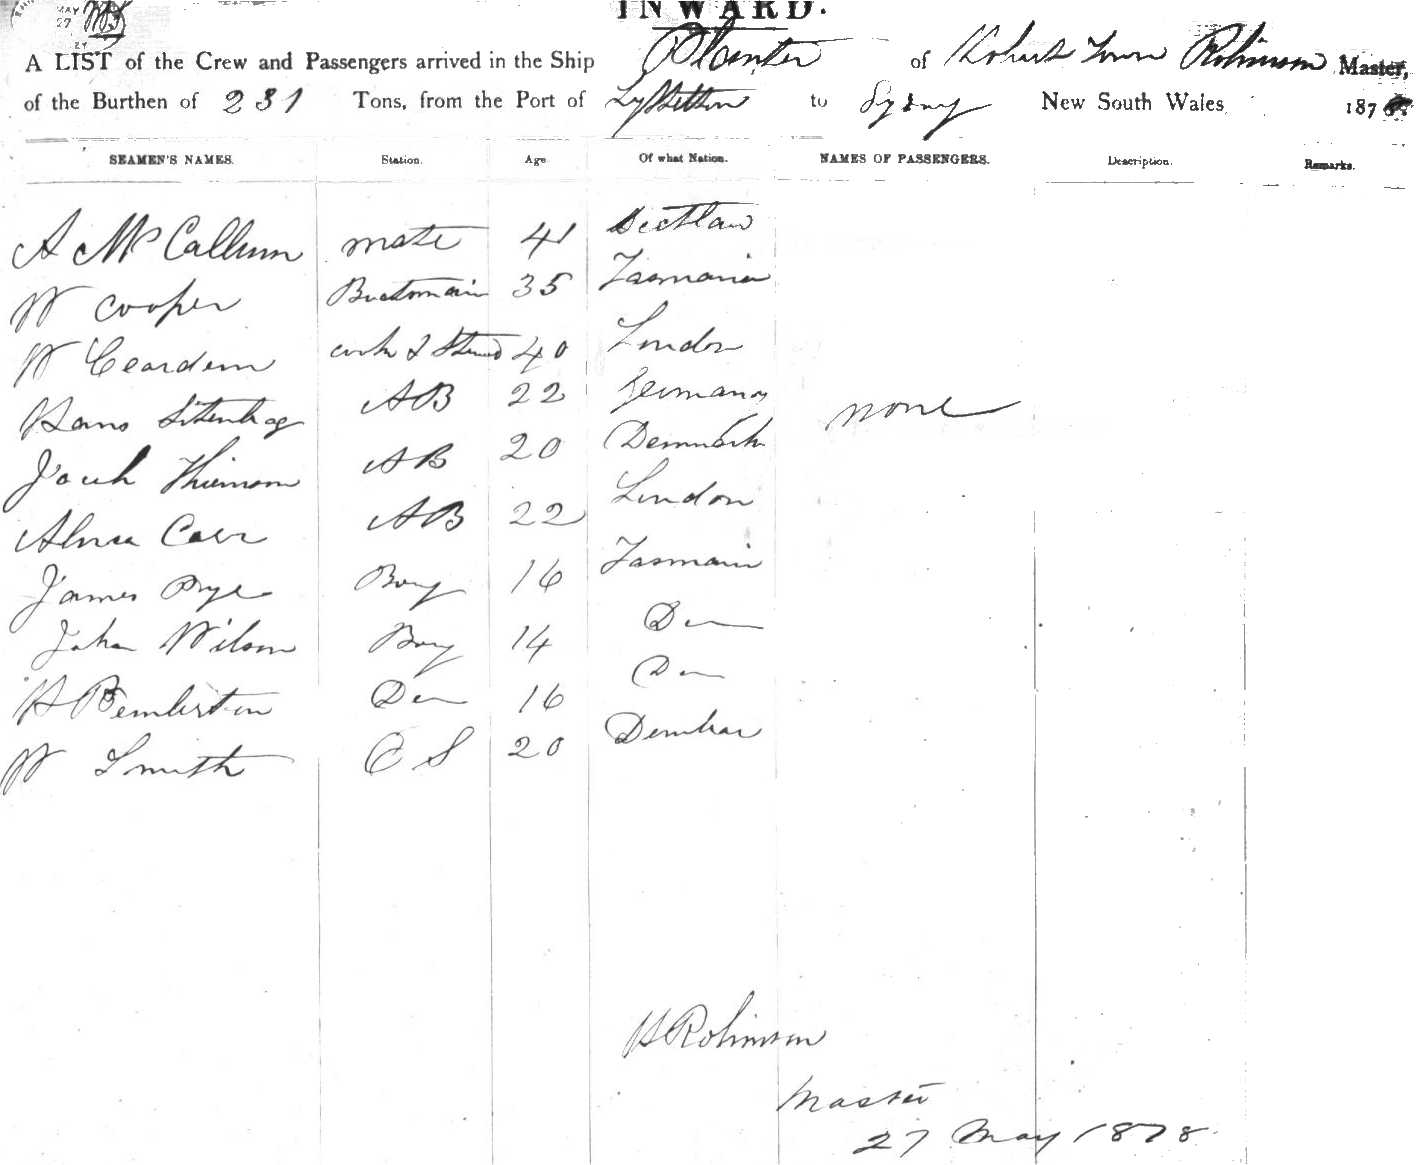 MAY
27
INWARD.
A LIST of the Crew and Passengers arrived in the Ship Planter of Hobart Town Robinson Master,
of the Burthen of 231 Tons, from the Port of Lyttelton to Sydney New South Wales 1878
SEAMEN'S NAMES. Station. Age Of what Nation. NAMES OF PASSENGERS. Description. Remarks.
A McCallum mate 41 Scotland
W Cooper Boatswain 35 Tasmania
W cook & Steward 40 London
Hans AB 22 Germany
none
Jacob AB 20 Denmark
Carr AB 22 London
James Pye Boy 16 Tasmania
John Wilson Boy 14 Do
H Pemberton Do 16 Do
W Smith O S 20
H Robinson
Master
27 May 1878